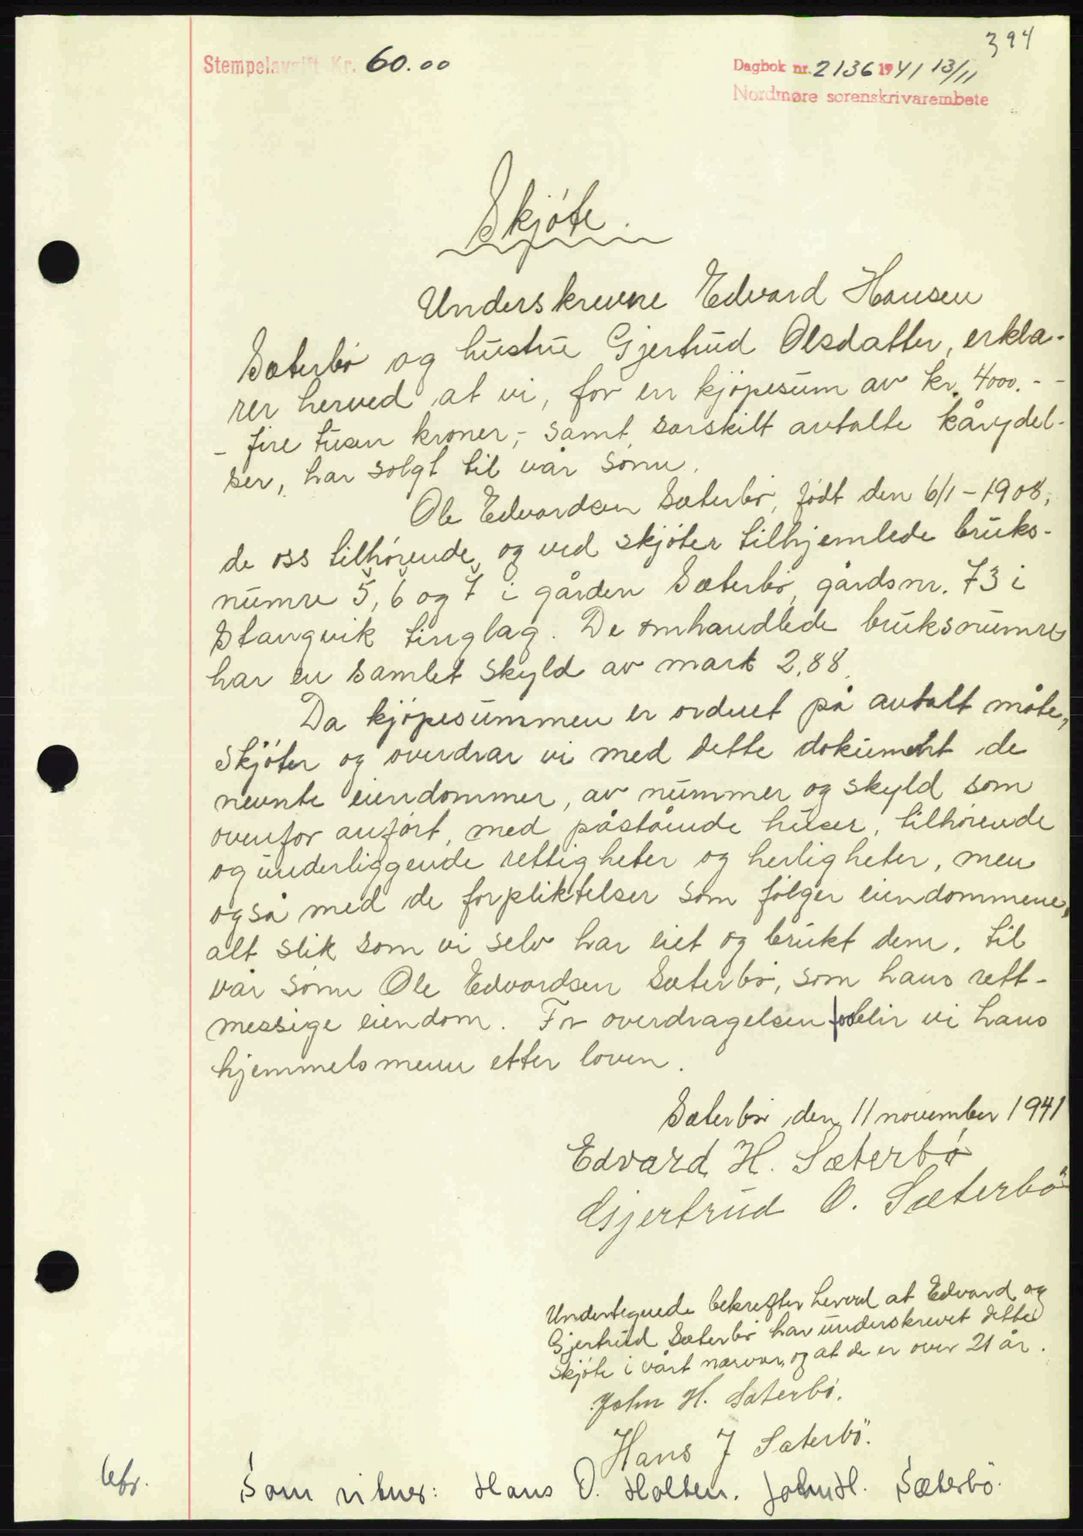 394
Stempelavgift Kr. 60.00
Dagbok nr. 2136 1941 13/11
Nordmøre sorenskrivarembete
Skjøte.
Underskrevne Edvard Hansen
Sæterbø og hustru Gjertrud Olsdatter, erklæ-
rer herved at vi, for en kjøpesum av kr. 4000. - -
- fire tusen kroner,- samt særskilt avtalte kårydel-
ser, har solgt til vår sønn,
Ole Edvardsen Sæterbø, født den 6/1 - 1908,
de oss tilhørende, og ved skjøter tilhjemlede bruks-
numre 5, 6 og 7 i gården Sæterbø, gårdsnr. 73 i
Stangvik tinglag. De omhandlede bruksnumre
har en samlet skyld av mark 2,88.
Da kjøpesummen er ordnet på avtalt måte,
skjøter og overdrar vi med dette dokument de
nevnte eiendommer, av nummer og skyld som
ovenfor anført, med påstående huser, tilhørende
og underliggende rettigheter og herligheter, men
også med de forpliktelser som følger eiendommene,
alt slik som vi selv har eiet og brukt dem, til
vår sønn Ole Edvardsen Sæterbø, som hans rett-
messige eiendom. For overdragelsen blir vi hans
hjemmelsmenn etter loven.
Sæterbø, den 11 november 1941
Edvard H. Sæterbø
Gjertrud O. Sæterbø
Undertegnede bekrefter herved at Edvard og
Gjertrud Sæterbø har underskrevet dette
skjøte i vårt nærvær, og at de er over 21 år.
John H. Sæterbø.
Hans J Sæterbø.
Som vitner: Hans O. Holten. John H. Sæterbø.